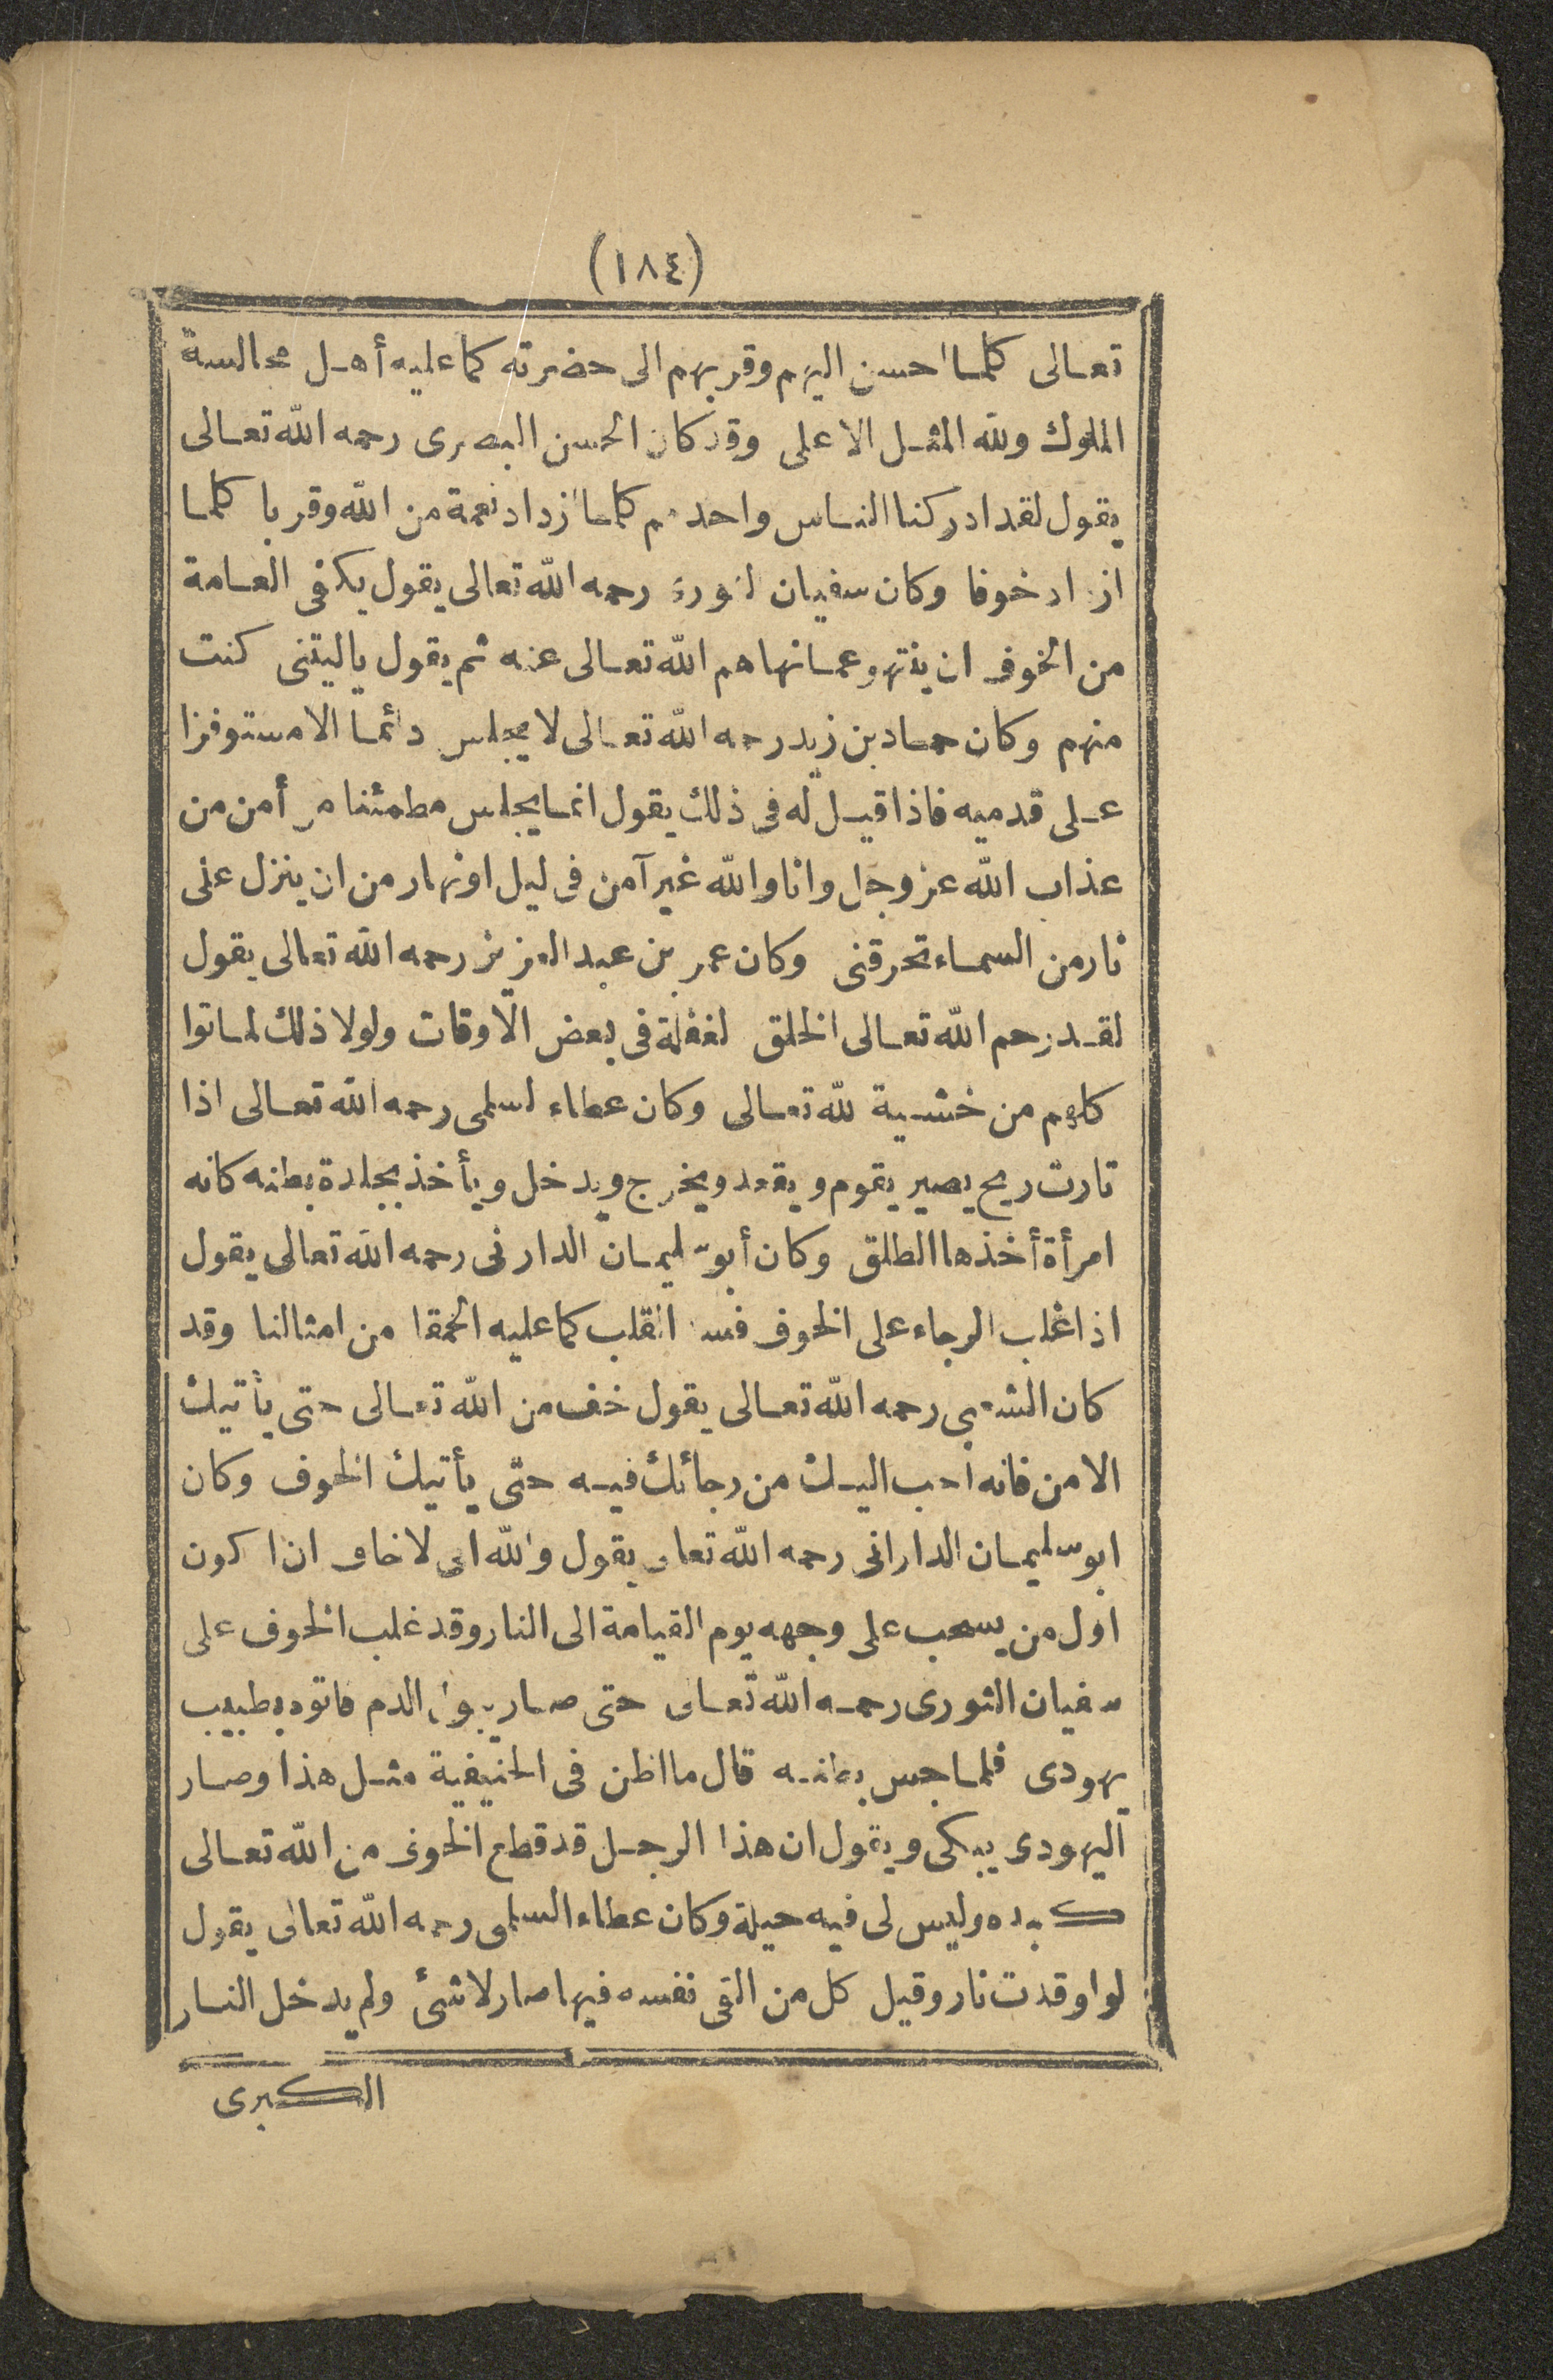 (١٨٤)
تعالى كلما احسن اليهم وقربهم الى حضرته كما عليه أهل مجالسة
الملوك ولله المثل الاعلى وقد كان الحسن البصرى رحمه الله تعالى
يقول لقد ادركنا الناس واحدهم كلما ازداد نعمة من الله وقربا كلما
ازداد خوفا وكان سفيان الثورى رحمه الله تعالى يقول يكفى العامة
من الخوف ان ينتهو عما نهاهم الله تعالى عنه ثم يقول ياليتنى كنت
منهم وكان حماد بن زيد رحمه الله تعالى لا يجلس دائما الا مستوفزا
على قدميه فاذا قيل له فى ذلك يقول انما يجلس مطمئنا من أمن من
عذاب الله عز وجل وانا والله غير آمن فى ليل او نهار من ان ينزل على
نار من السماء تحرقنى وكان عمر بن عبد العزيز رحمه الله تعالى يقول
لقد رحم الله تعالى الخلق لغفلة فى بعض الاوقات ولولا ذلك لماتوا
كلهم من خشية لله تعالى وكان عطاء السلمى رحمه الله تعالى اذا
ثارت ريح يصير يقوم ويقعد ويخرج ويدخل ويأخذ بجلدة بطنه كانه
امرأة أخذها الطلق وكان أبو سليمان الدارنى رحمه الله تعالى يقول
اذا غلب الرجاء على الخوف فسد القلب كما عليه الحمقا من امثالنا وقد
كان الشعبى رحمه الله تعالى يقول خف من الله تعالى حتى يأتيك
الامن فانه احب اليك من رجائك فيه حتى يأتيك الخوف وكان
ابو سليمان الدارانى رحمه الله تعالى يقول والله انى لاخاف ان اكون
اول من يسحب على وجهه يوم القيامة الى النار وقد غلب الخوف على
سفيان الثورى رحمه الله تعالى حتى صار يبول الدم فاتوه بطبيب
يهودى فلما جس بطنه قال ما اظن فى الحنيفية مثل هذا وصار
اليهودى يبكى ويقول ان هذا الرجل قد قطع الخوف من الله تعالى
كبده وليس لى فيه حيلة وكان عطاء السلمى رحمه الله تعالى يقول
لو اوقدت نار وقيل كل من القى نفسه فيها صار لا شئ ولم يدخل النار
الكبرى